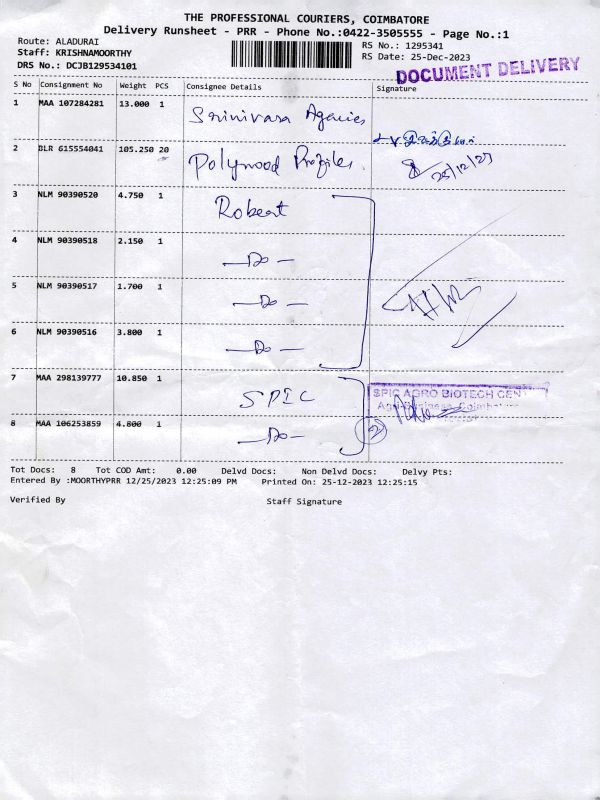 THE PROFESSIONAL COURIERS, COIMBATORE
Delivery Runsheet - PRR - Phone No.:0422-3505555 - Page No.:1
Route: ALADURAI
Staff: KRISHNAMOORTHY
DRS No.: DCJB129534101
RS No.: 1295341
RS Date: 25-Dec-2023
DOCUMENT DELIVERY
S No Consignment No Weight PCS Consignee Details Signature
1 MAA 107284281 13.000 1 Srinivasa Agencies
2 BLR 615554041 105.250 20 Polywood Profiles 25/12/23
3 NLM 90390520 4.750 1 Robert
4 NLM 90390518 2.150 1 —Do—
5 NLM 90390517 1.700 1 —Do—
6 NLM 90390516 3.800 1 —Do—
7 MAA 298139777 10.850 1 SPIC
SPIC AGRO BIOTECH CEN
8 MAA 106253859 4.800 1 —Do— 2
Tot Docs: 8 Tot COD Amt: 0.00 Delvd Docs: Non Delvd Docs: Delvy Pts:
Entered By :MOORTHYPRR 12/25/2023 12:25:09 PM Printed On: 25-12-2023 12:25:15
Verified By Staff Signature